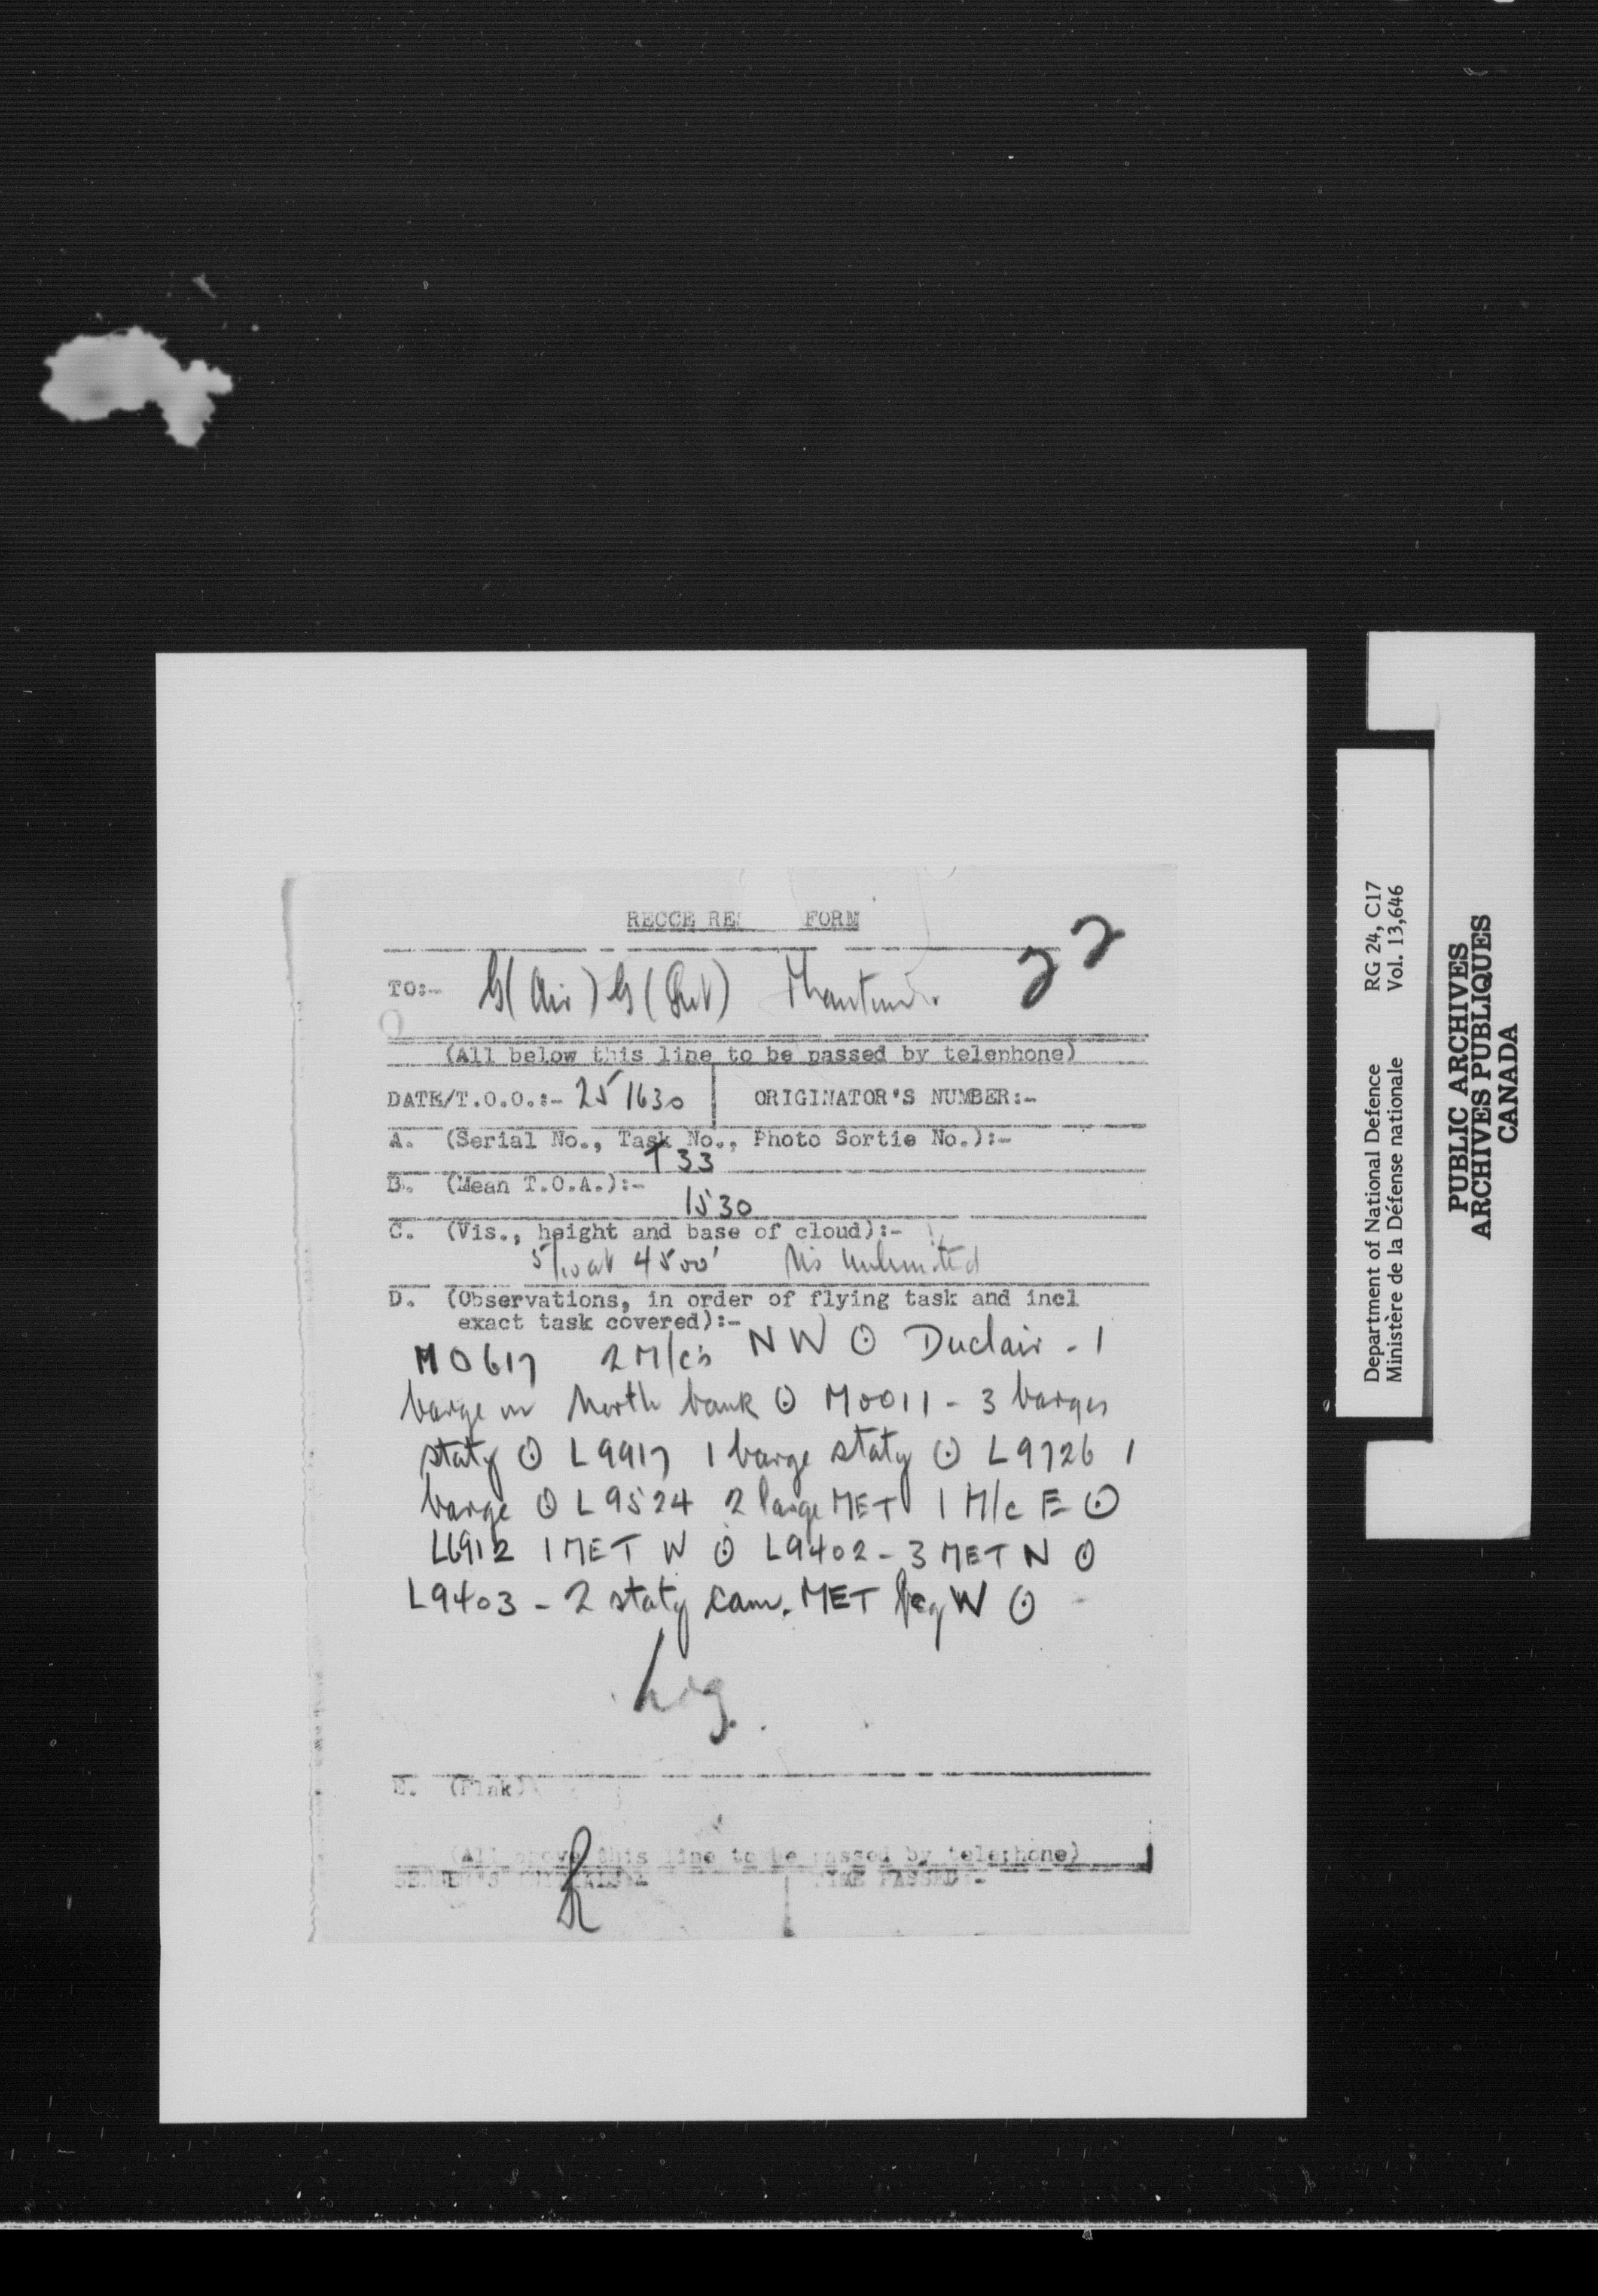 RECCE RE FORM
22
TO:- G(Air) G(Int)
(All below this line to be passed by telephone)
DATE/T.O.O.:- 25 1630 ORIGINATOR'S NUMBER:-
A. (Serial No., Task No., Photo Sortie No.):-
T 33
B. (Mean T.O.A.):-
1530
C. (Vis., height and base of cloud):-
5/10 at 4500' Vis Unlimited
D. (Observations, in order of flying task and incl
exact task covered):-
M0617 2 M/c's NW ⊙ Duclair - 1
barge on North bank ⊙ M0011 - 3 barges
staty ⊙ L9917 1 barge staty ⊙ L9726 1
barge ⊙ L9524 2 large MET 1 M/c E ⊙
L6912 1 MET W ⊙ L9402 - 3 MET N ⊙
L9403 - 2 staty cam. MET fcg W ⊙
E. (Flak)
(All above this line to be passed by telephone)
SENDER'S INITIALS:- TIME PASSED:-
Department of National Defence RG 24, C17
Ministère de la Défense nationale Vol. 13,646
PUBLIC ARCHIVES
ARCHIVES PUBLIQUES
CANADA